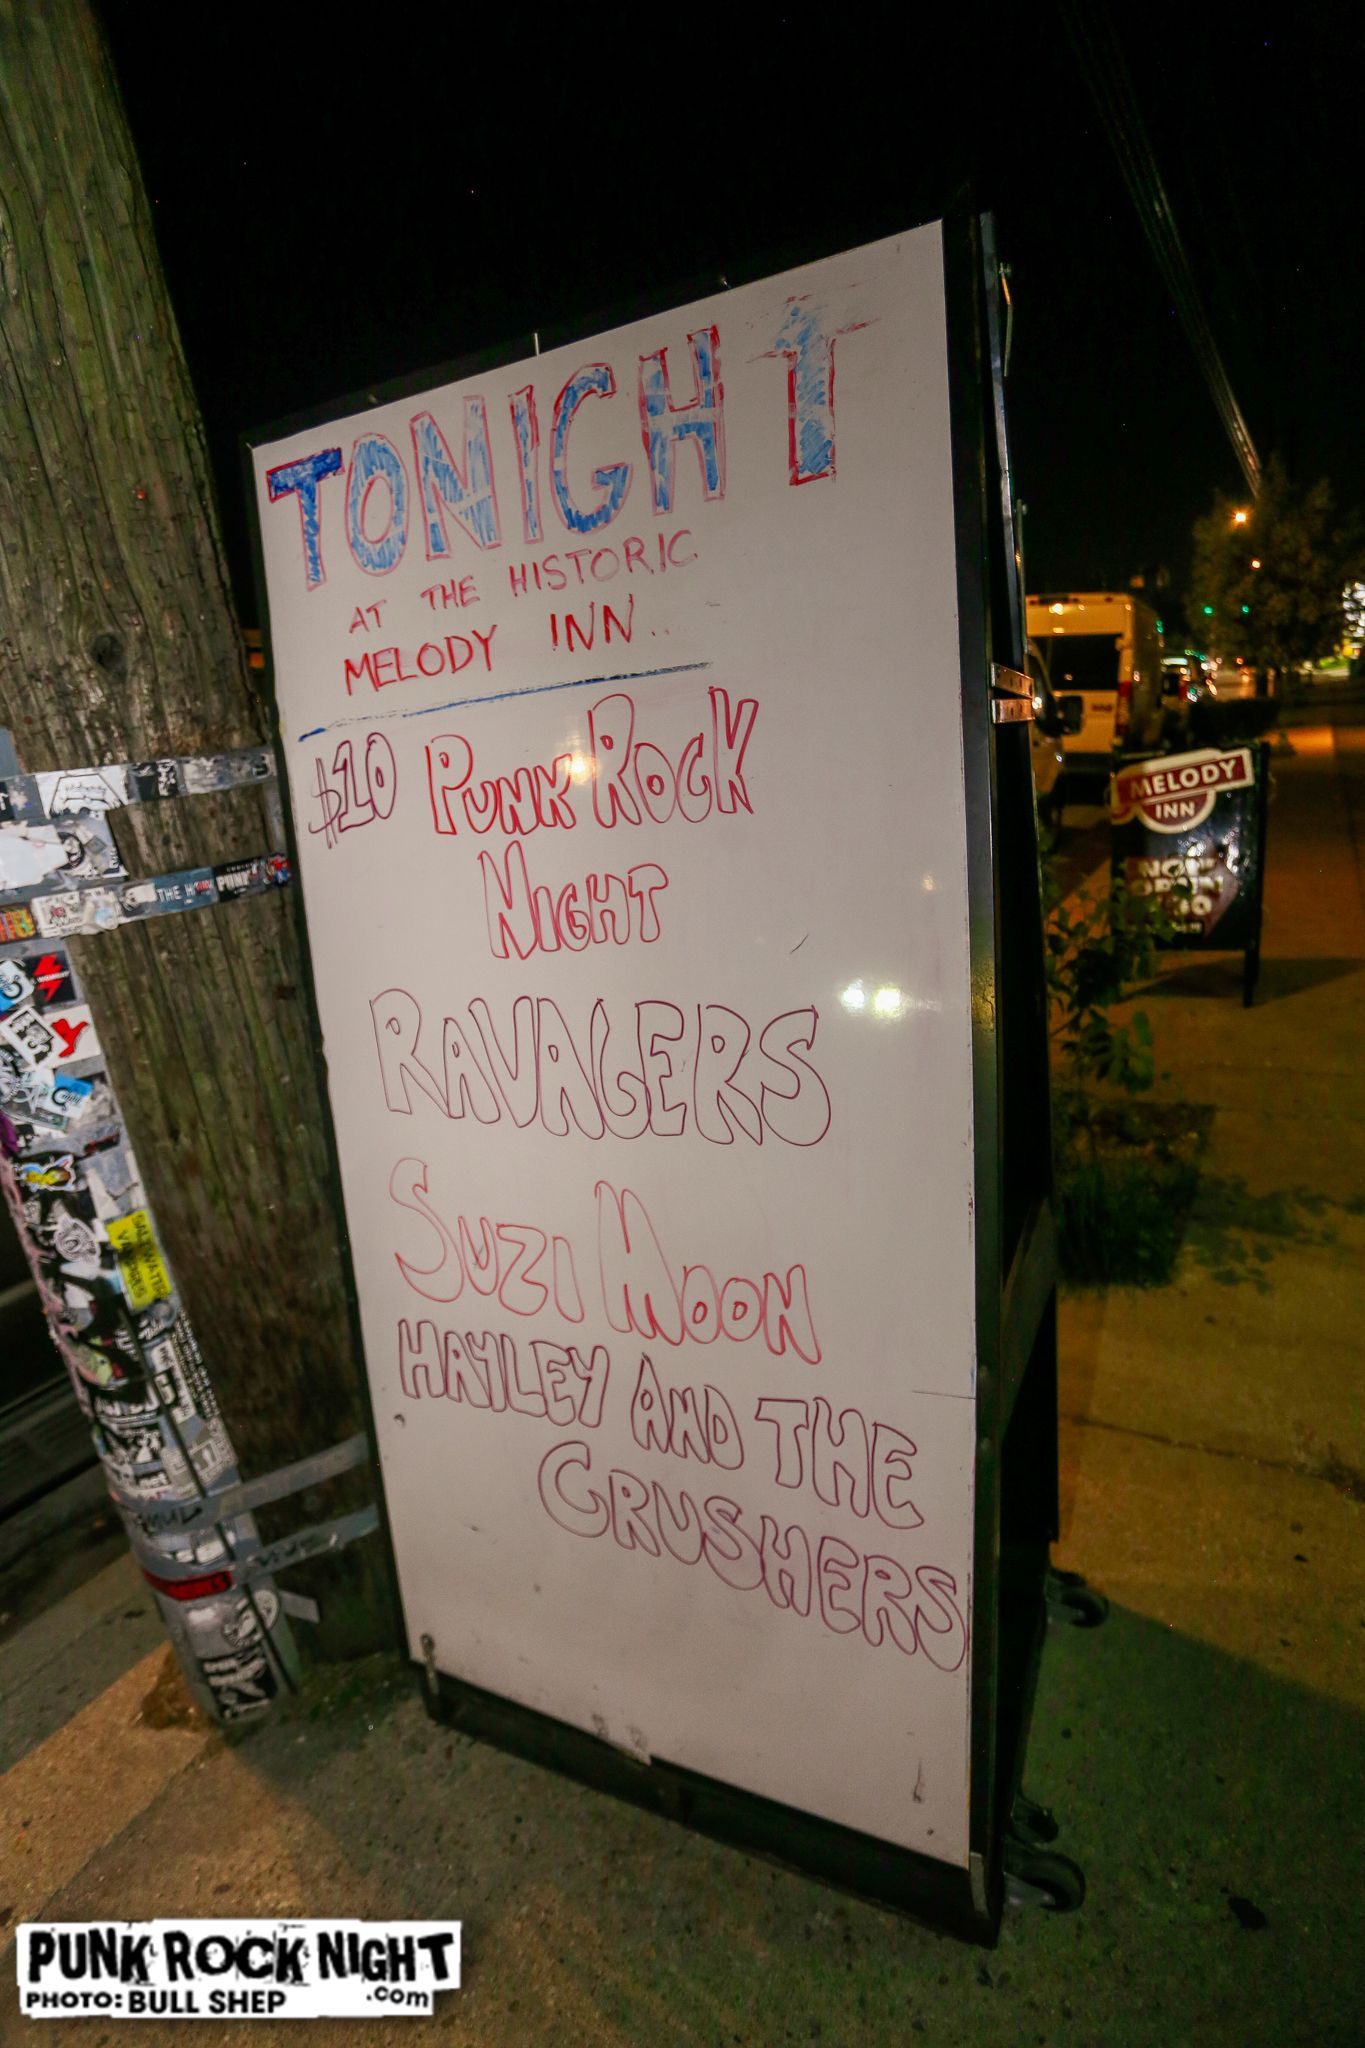 TONIGHT
AT THE HISTORIC
MELODY INN..
$10 PUNK ROCK
NIGHT
RAVAGERS
SUZI MOON
HAYLEY AND THE
CRUSHERS
MELODY
INN
NOW
OPEN
PUNK
SALTWATER
VAMPIRES
PUNK ROCK NIGHT
.com
PHOTO: BULL SHEP